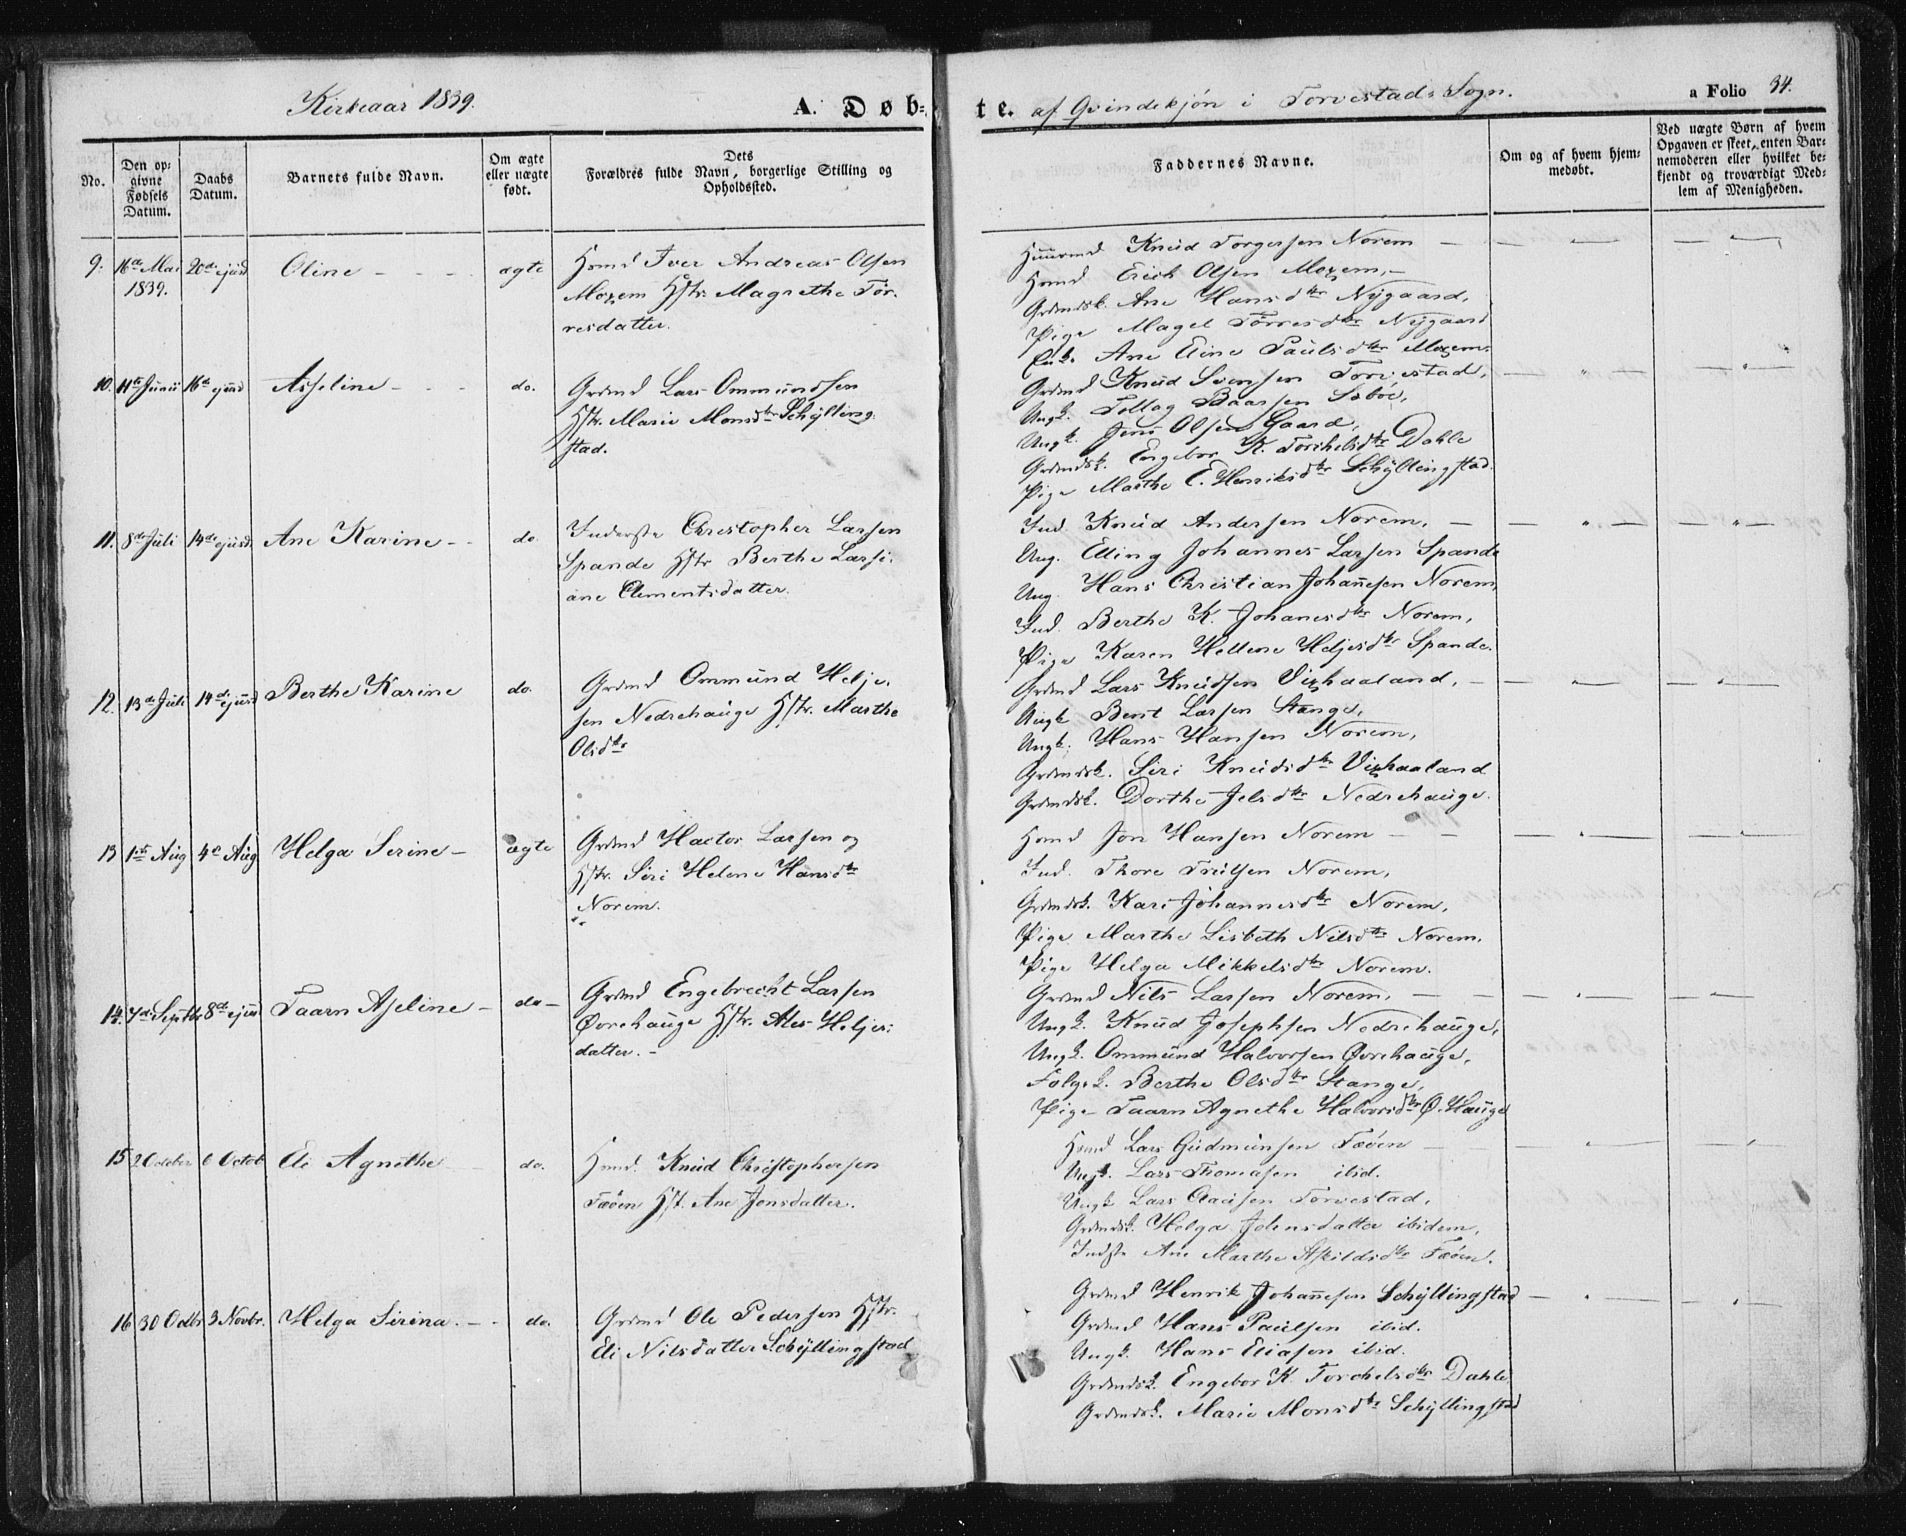 Kirkeaar 1839.
A. Døb-
te. af Qvindekjøn i Torvestads Sogn.
a Folio 34.
No.
Den opgivne Fødsels Datum.
Daabs Datum.
Barnets fulde Navn.
Om ægte eller uægte født.
Dets Forældres fulde Navn, borgerlige Stilling og Opholdssted.
Faddernes Navne.
Om og af hvem hjemmedøbt.
Ved uægte Børn af hvem Opgaven er skeet, enten Barnemoderen eller hvilket bekjendt og troværdigt Medlem af Menigheden.
9. 16de Mai 1839. 20de ejusd Oline - - - ægte
Hmd Iver Andreas Olsen
Mozem Hstr. Magrethe Tør-
resdatter.
Huusmd Knud Torgersen Norem — — " — — " —
Hmd Erich Olsen Mozem, -
Grdmdsk. Ane Hansdtr Nygaard,
Pige Magel Tørresdtr Nygaard
Enk. Ane Eline Paulsdtr Mozem.
10. 11te Junii 16de ejusd Asseline - - - do.
Grdmd Lars Ommundsen
Hstr. Marie Monsdtr Schylling-
stad.
Grdmd Knud Svensen Torvestad, — " — — " —
Ungk. Tollag Baarsen Sæbøe,
Ungk. Jens Olsen Gaard,
Grdmdsk. Engebor K. Torchelsdtr Dahle
Pige Marthe E. Henriksdtr Schyllingstad.
11. 8de Juli 14de ejusd. Ane Karine - - do.
Inderste Christopher Larsen
Spande Hstr Berthe Larsi-
ane Clementsdatter.
Ind. Knud Andersen Norem. — — " — — " —
Ung. Elling Johannes Larsen Spande
Ung. Hans Christian Johannesen Norem,
Ind. Berthe K. Johanesdtr Norem,
Pige Karen Hellene Heljesdtr Spande.
12. 13de Juli 14de ejusd Berthe Karine do.
Grdmd Ommund Helje-
sen Nedrehauge Hstr. Marthe
Olsdtr
Grdmd Lars Knudsen Vizhaaland, — — " — — " —
Ungk Bent Larsen Stange,
Ungk. Hans Hansen Norem,
Grdmdsk. Siri Knudsdtr Vizhaaland
Grdmdsk. Dorthe Jelsdtr Nedrehauge.
13 1ste Aug 4e Aug Helga Serine - ægte
Grdmd Hactor Larsen og
Hstr. Siri Helene Hansdtr
Norem.
Hmd Jon Hansen Norem — — — " — — " —
Ind. Thore Trulsen Norem,
Grdmdsk. Kari Johannesdtr Norem,
Pige Marthe Lisbeth Nilsdtr Norem.
Pige Helga Mikkelsdtr Norem.
14. 7de Septbr 8de ejusd Taarn Aseline - do -
Grdmd Engebrecht Larsen
Øvrehauge Hstr. Ales Heljes-
datter. -
Grdmd Nils Larsen Norem. — — " — — " —
Ungk. Knud Josephsen Nedrehauge,
Ungk. Ommund Halvorsen Øvrehauge,
Folgek. Berthe Olsdtr Stange,
Pige Taarn Agnethe Halvorsdtr Ø. Hauge
15 2 October 6 Octob Eli Agnethe do.
Hmd. Knud Christophersen
Føøen Hst. Ane Jonsdatter.
Hmd Lars Gudmunsen Føøen — — " — — " —
Ungk. Lars Thomasen ibid.
Ungk Lars Torvestad,
Grdmdsk. Helga Johnsdatter ibidem,
Indste Ane Marthe Askildsdtr Føøen.
16 30 Octbr 3 Novbr. Helga Sirina. - - do.
Grdmd Ole Pedersen Hstr.
Eli Nilsdatter Schyllingstad
Grdmd Henrik Johannesen Schyllingstad — " — — " —
Grdmd Hans Paulsen ibid.
Ungk. Hans Eliasen ibid.
Grdmdsk. Engebor K. Torchelsdtr Dahle
Grdmdsk. Marie Monsdtr Schyllingstad